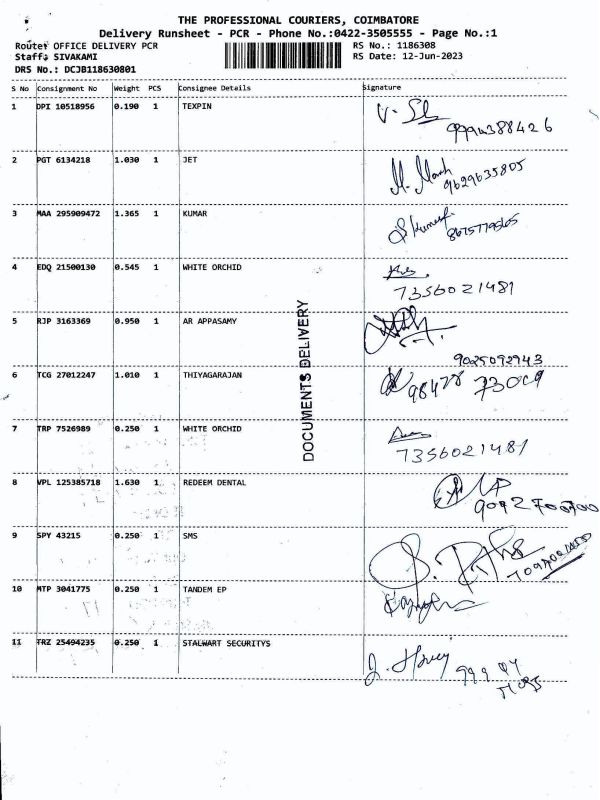 THE PROFESSIONAL COURIERS, COIMBATORE
Delivery Runsheet - PCR - Phone No.:0422-3505555 - Page No.:1
Route: OFFICE DELIVERY PCR RS No.: 1186308
Staff: SIVAKAMI RS Date: 12-Jun-2023
DRS No.: DCJB118630801
S No Consignment No Weight PCS Consignee Details Signature
1 DPI 10518956 0.190 1 TEXPIN
9994388426
2 PGT 6134218 1.030 1 JET
9629635805
3 MAA 295909472 1.365 1 KUMAR
4 EDQ 21500130 0.545 1 WHITE ORCHID
7356021481
5 RJP 3163369 0.950 1 AR APPASAMY
9025092943
6 TCG 27012247 1.010 1 THIYAGARAJAN
7 TRP 7526989 0.250 1 WHITE ORCHID
7356021481
8 VPL 125385718 1.630 1 REDEEM DENTAL
9 SPY 43215 0.250 1 SMS
10 MTP 3041775 0.250 1 TANDEM EP
11 TRZ 25494235 0.250 1 STALWART SECURITYS
DOCUMENTS DELIVERY